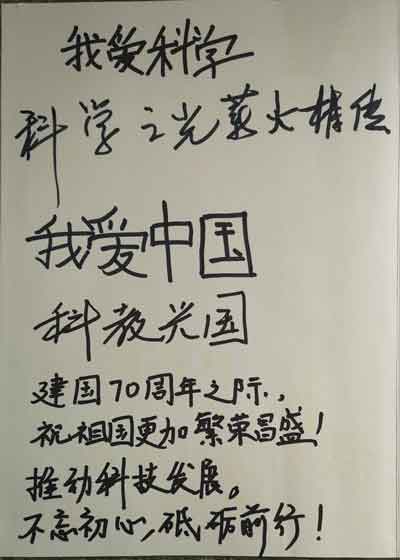 我爱科学
科学之光薪火相传
我爱中国
科教兴国
建国70周年之际,
祝祖国更加繁荣昌盛!
推动科技发展。
不忘初心,砥砺前行!